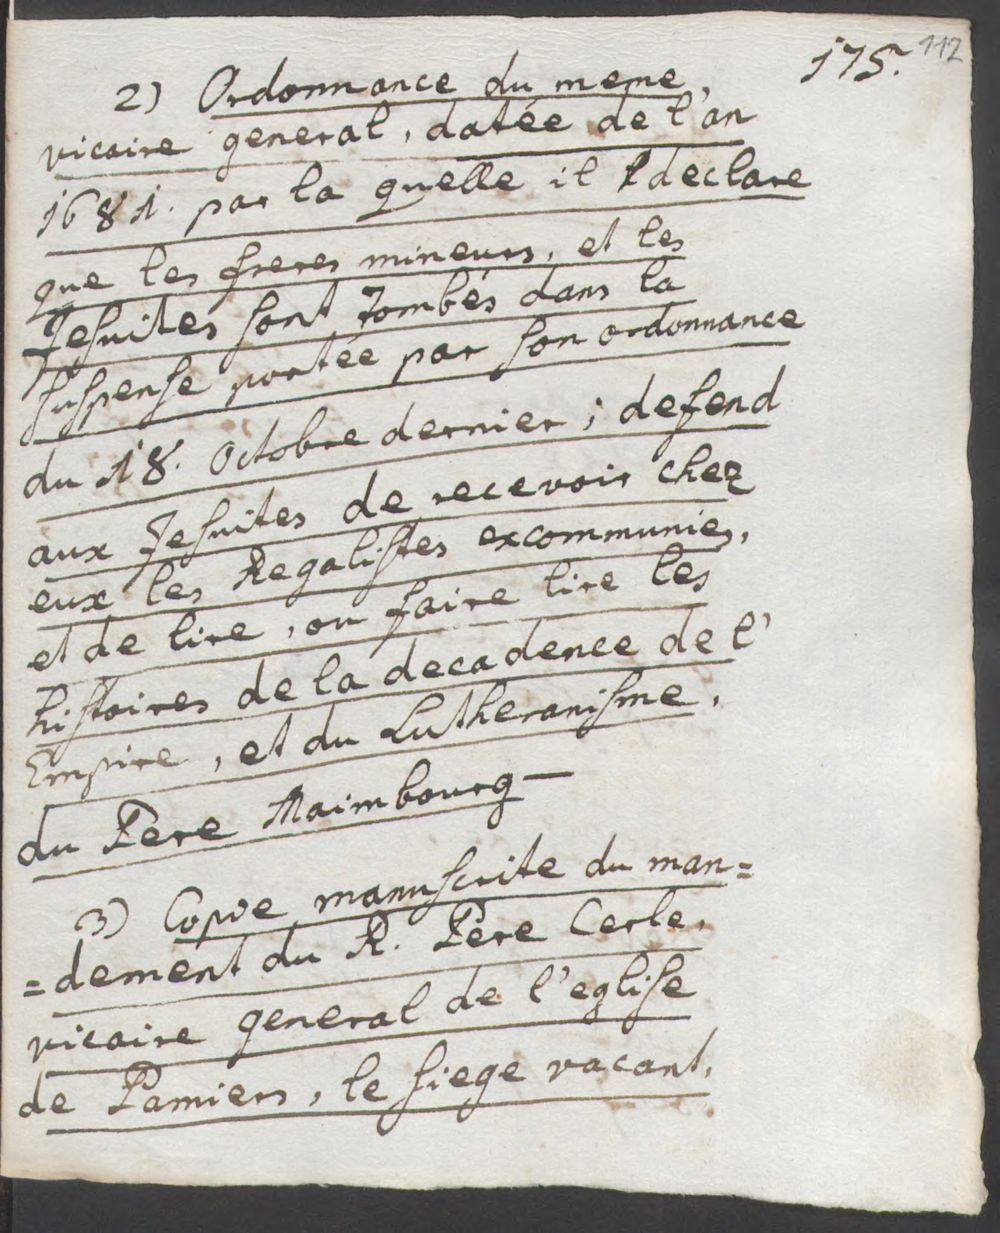 175. 112
2) Ordonnance du meme,
vicaire general, datée de l'an
1681. par la quelle il declare
que les freres mineurs, et les
Jesuites sont tombés dans la
suspense portée par son ordonnance
du 18. Octobre dernier; defend
aux Jesuites de recevoir chez
eux les Regalistes excommunies,
et de lire, ou faire lire les
histoires de la decadence de l'
Empire, et du Lutheranisme,
du Pere Maimbourg —
3) Copie manuscrite du man=
=dement du R. Pere Cerle,
vicaire general de l'eglise
de Pamiers, le siege vacant,